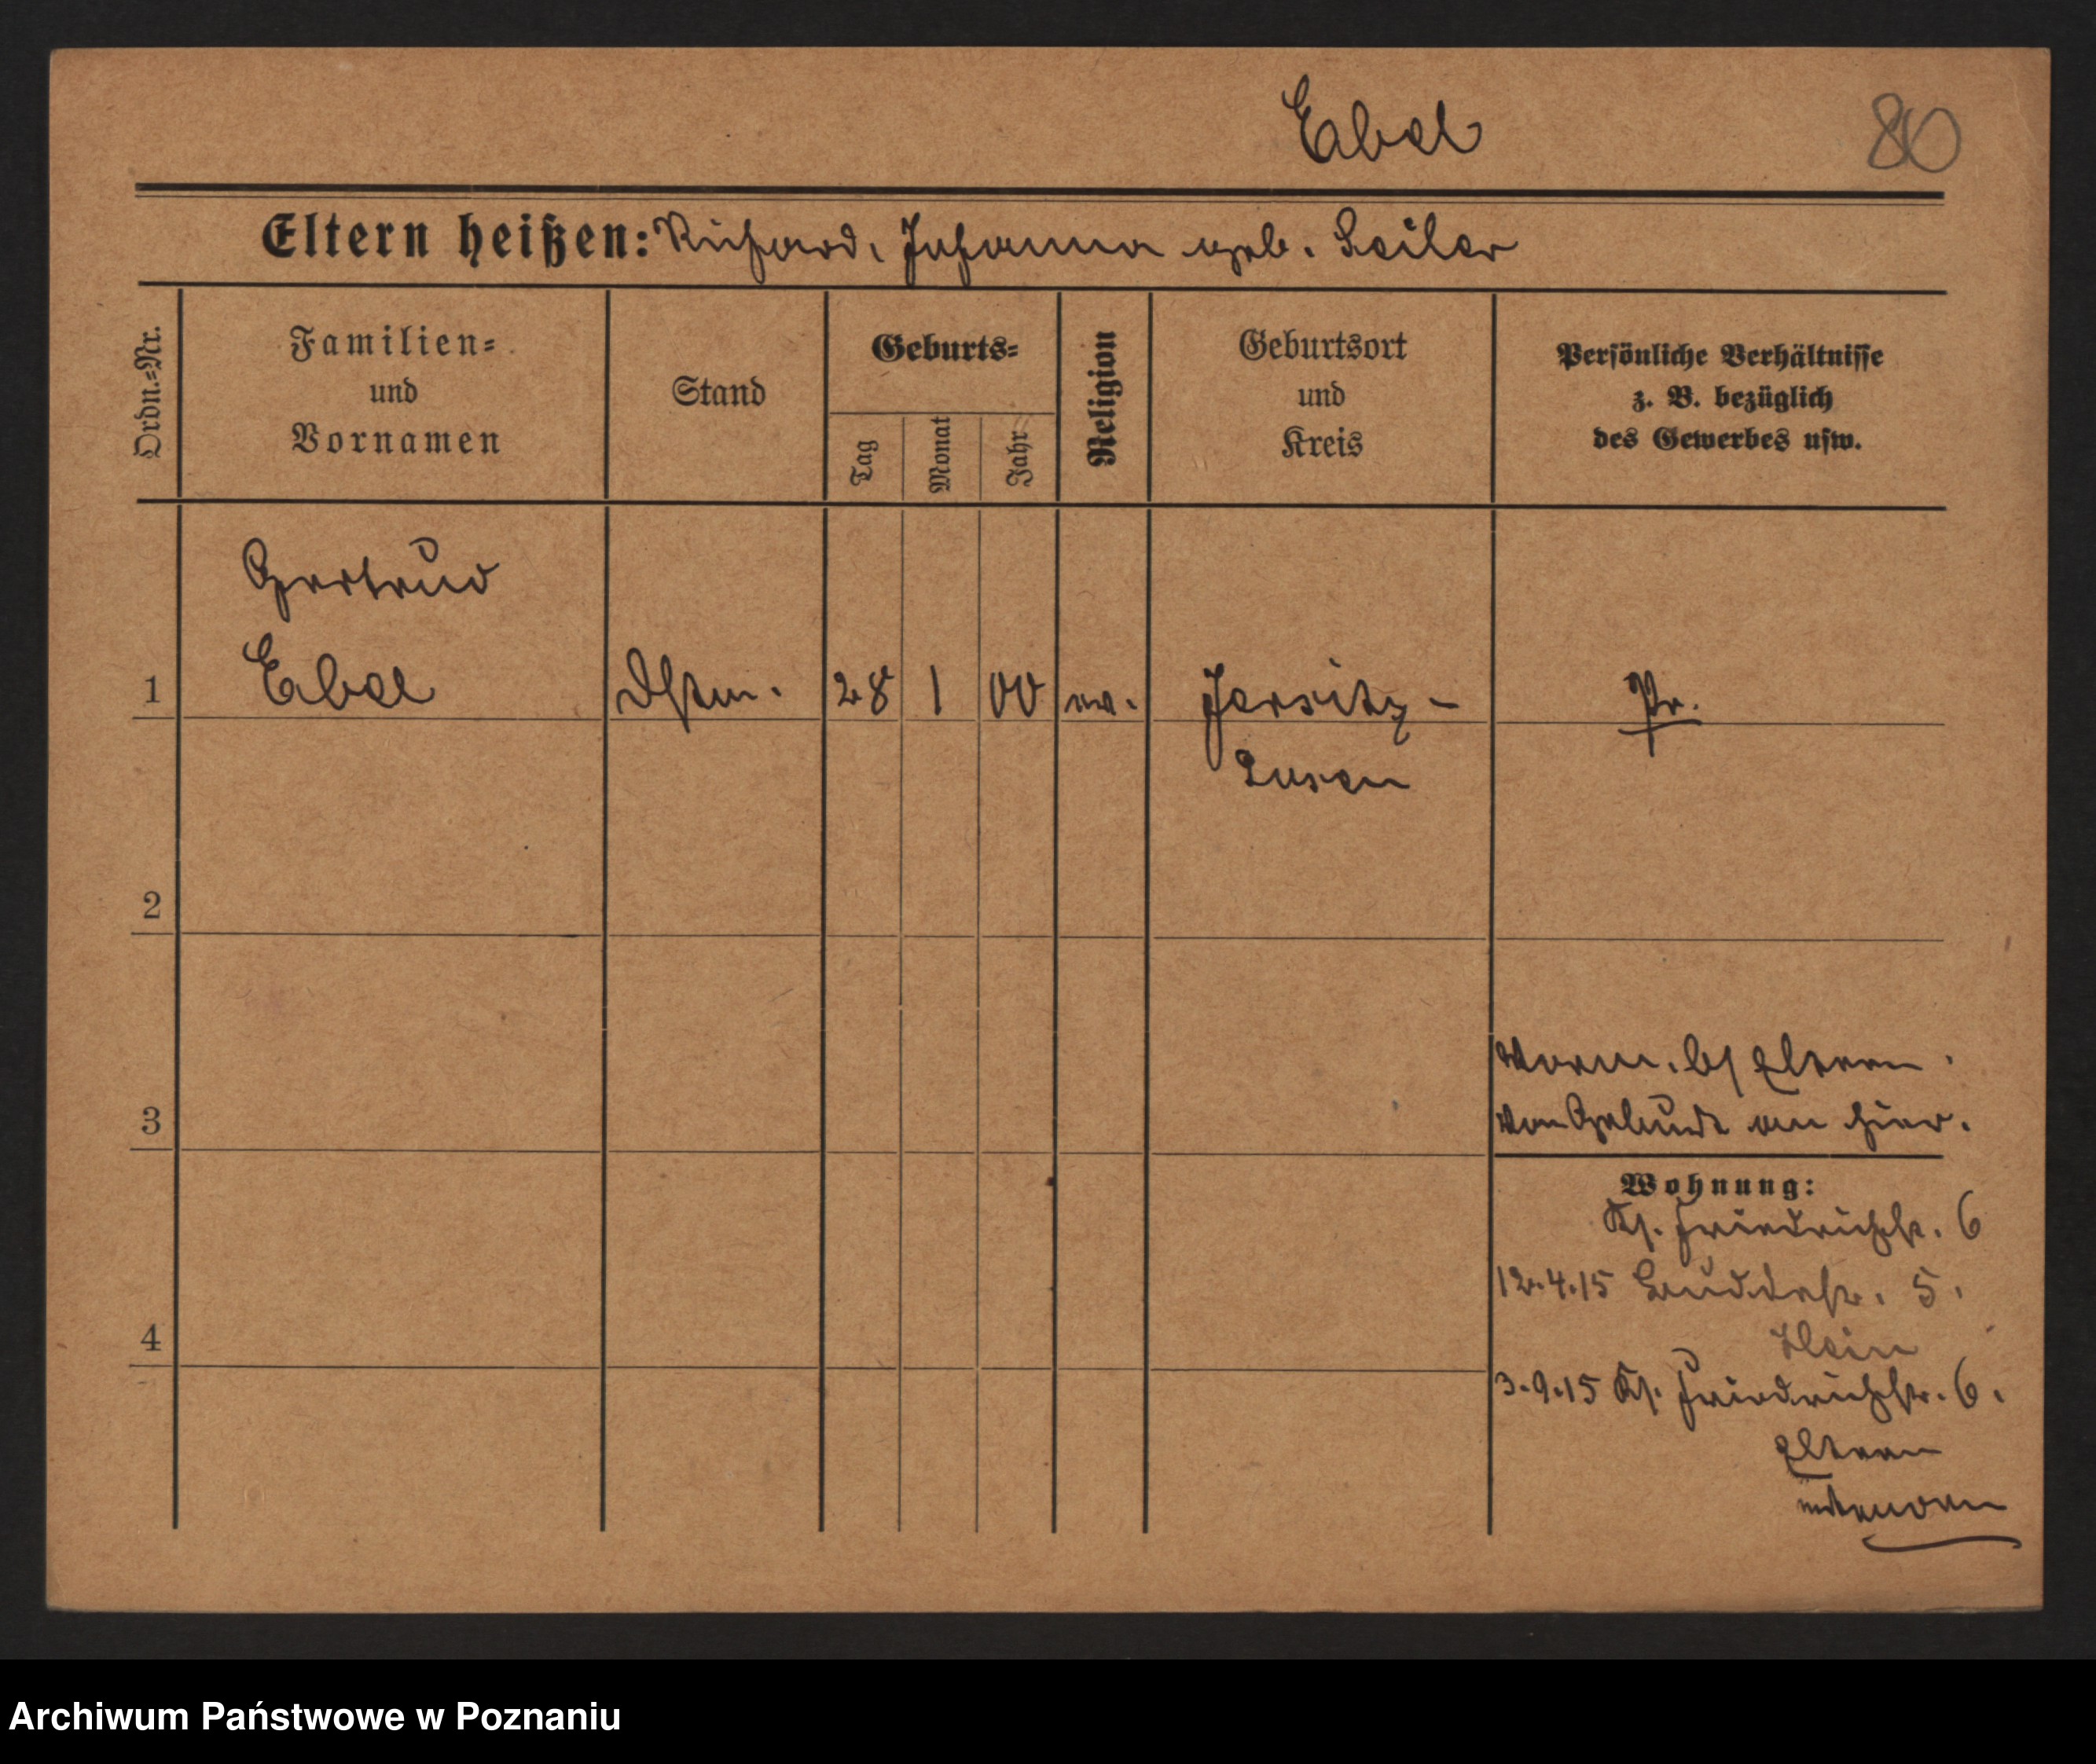 Ebel
80
Eltern heißen: Richard, Johanna geb. Seiler
Ordn.=Nr.
Familien=
und
Vornamen
Stand
Geburts=
Tag
Monat
Jahr
Religion
Geburtsort
und
Kreis
Persönliche Verhältnisse
z. B. bezüglich
des Gewerbes usw.
Gertrud
1 Ebel 28 1 00 ev. Jersitz - Pr.
Posen
2
Vorm. b/ Eltern.
3 von Geburt an hier.
Wohnung:
Kl. Friedrichstr. 6
12.4.15 5.
4
3.9.15 Kl. Friedrichstr. 6.
Eltern
Archiwum Państwowe w Poznaniu